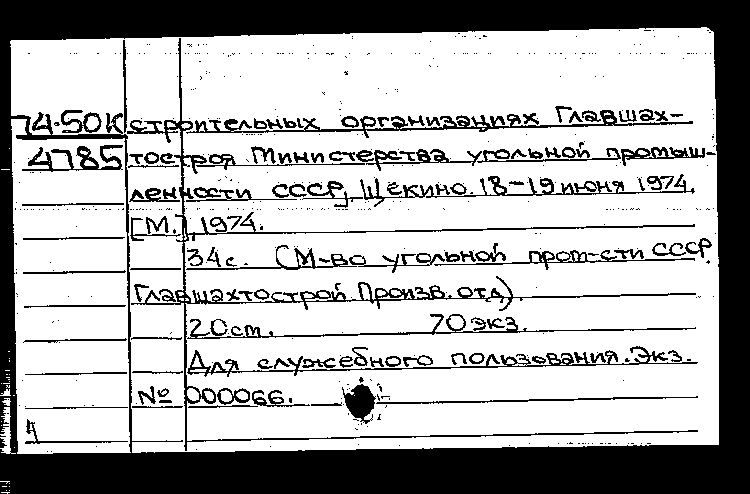 74-50К строительных организациях Главшах-
4785 тостроя Министерства угольной промыш-
ленности СССР], Щёкино. 18-19 июня 1974.
[М.], 1974.
34с. (М-во угольной пром-сти СССР.
Главшахтострой. Произв. отд).
20 см. 70 экз.
Для служебного пользования. Экз.
№ 000066.